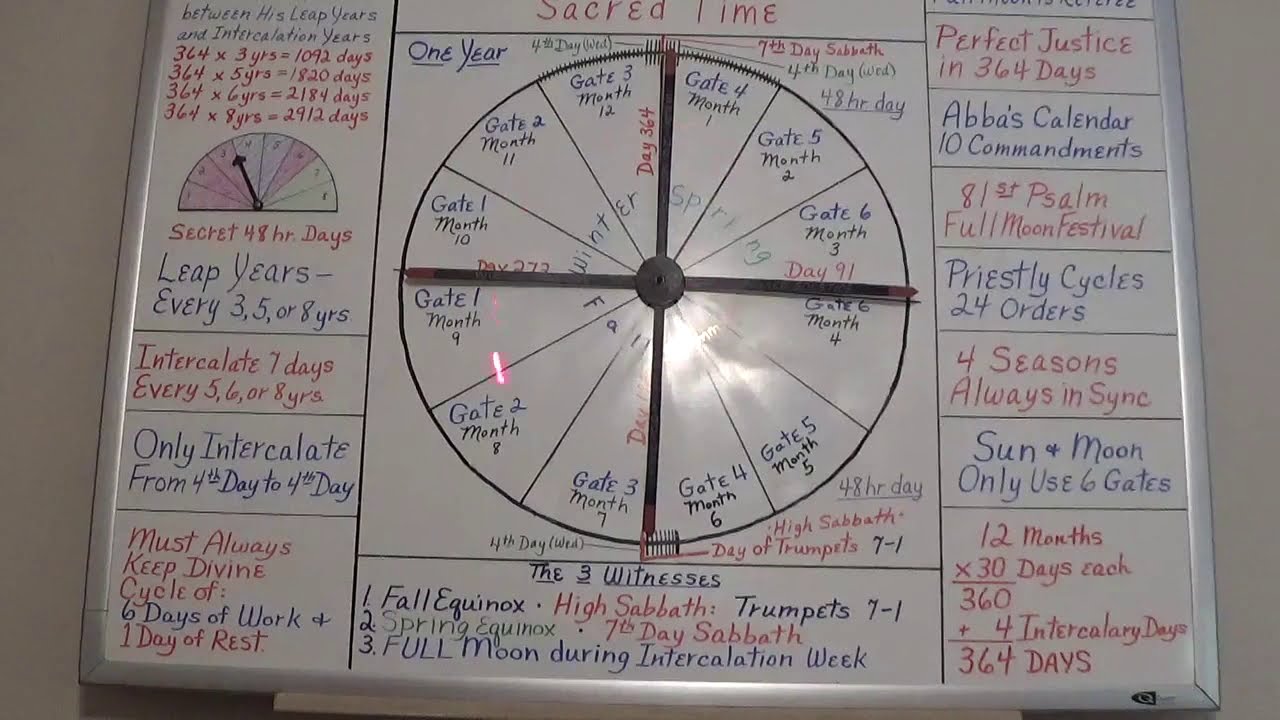 between His Leap Years
and Intercalation Years
364 x 3yrs = 1092 days
364 x 5yrs = 1820 days
364 x 6yrs = 2184 days
364 x 8yrs = 2912 days
1
2
3
4
5
6
7
8
Secret 48 hr. Days
Leap Years –
Every 3, 5, or 8 yrs.
Intercalate 7 days
Every 5, 6, or 8 yrs.
Only Intercalate
From 4th Day to 4th Day
Must Always
Keep Divine
Cycle of:
6 Days of Work &
1 Day of Rest.
Sacred Time
One Year
4th Day (Wed)
7th Day Sabbath
4th Day (Wed)
48 hr day
Gate 3
Month
12
Gate 4
Month
1
Gate 2
Month
11
Gate 5
Month
2
Gate 1
Month
10
Gate 6
Month
3
Day 364
Winter
Spring
Day 273
Day 91
Gate 1
Month
9
Gate 6
Month
4
Fall
Gate 2
Month
8
Gate 5
Month
5
Gate 3
Month
7
Gate 4
Month
6
Day
48 hr day
4th Day (Wed)
·High Sabbath·
Day of Trumpets 7-1
The 3 Witnesses
1. Fall Equinox · High Sabbath: Trumpets 7-1
2. Spring Equinox · 7th Day Sabbath
3. FULL Moon during Intercalation Week
Full Moon is Referee
Perfect Justice
in 364 Days
Abba's Calendar
10 Commandments
81st Psalm
Full Moon Festival
Priestly Cycles
24 Orders
4 Seasons
Always in Sync
Sun & Moon
Only Use 6 Gates
12 Months
x 30 Days each
360
+ 4 Intercalary Days
364 DAYS